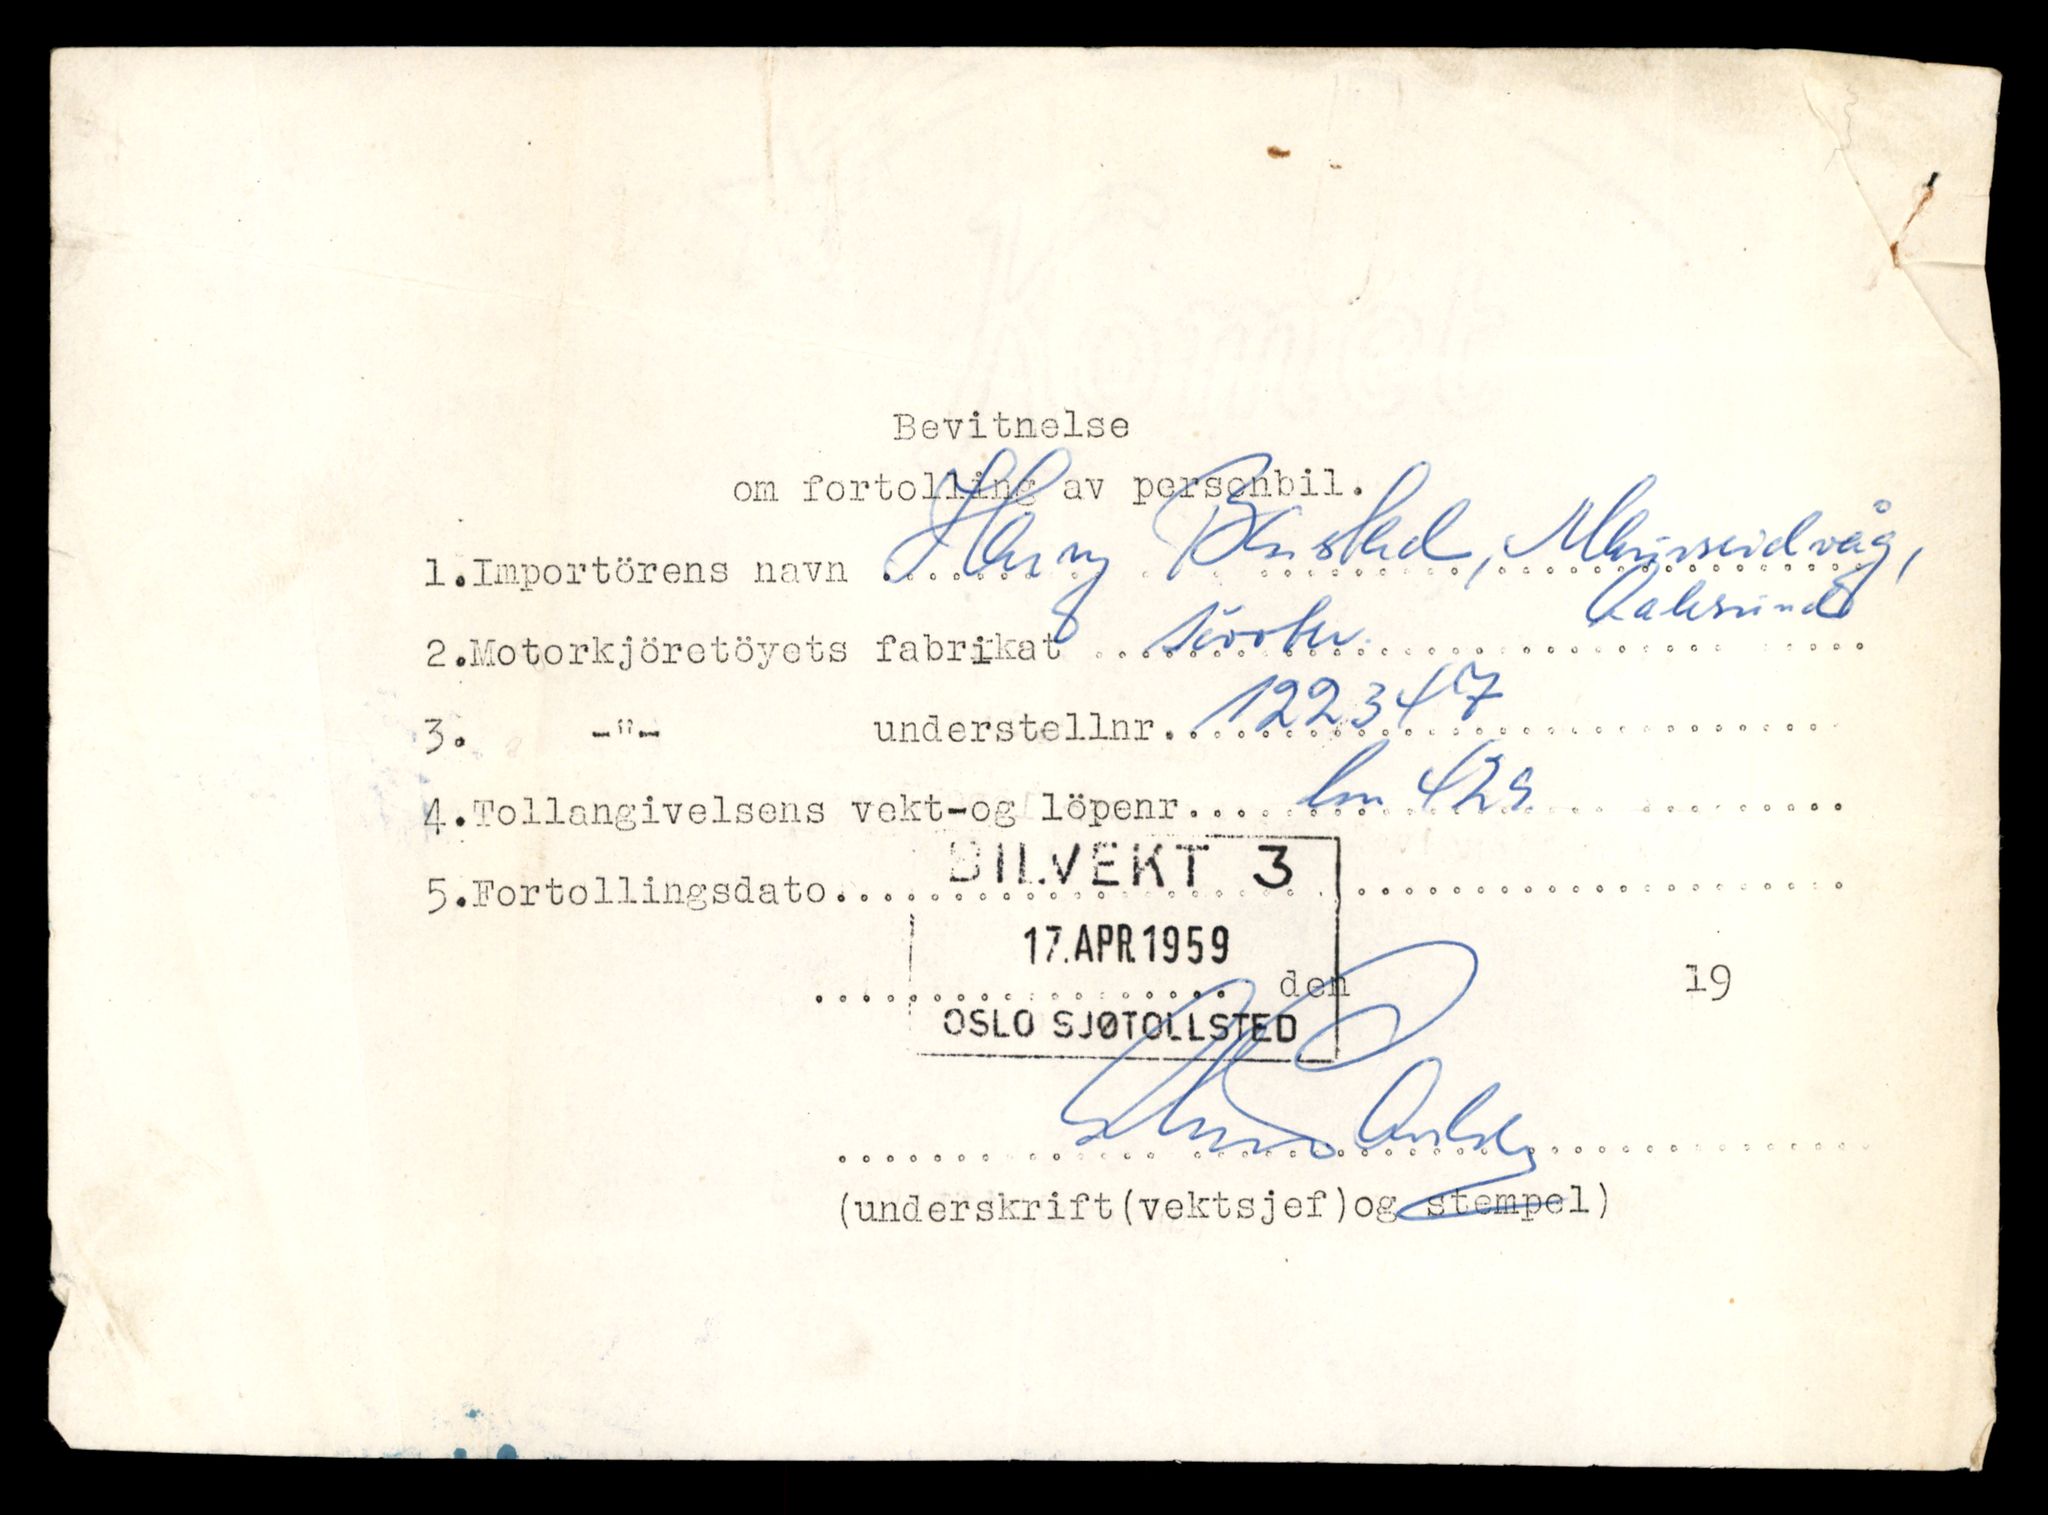 Bevitnelse
om fortolling av personbil.
1.Importörens navn ..... Harry Bustad, Mauseidvåg,
Aalesund
2.Motorkjöretöyets fabrikat ..........
3. -"- understellnr. 122347
4.Tollangivelsens vekt-og löpenr.... 429
5.Fortollingsdato..........
BILVEKT 3
17.APR.1959
.......... den 19
OSLO SJØTOLLSTED
(underskrift(vektsjef)og stempel)